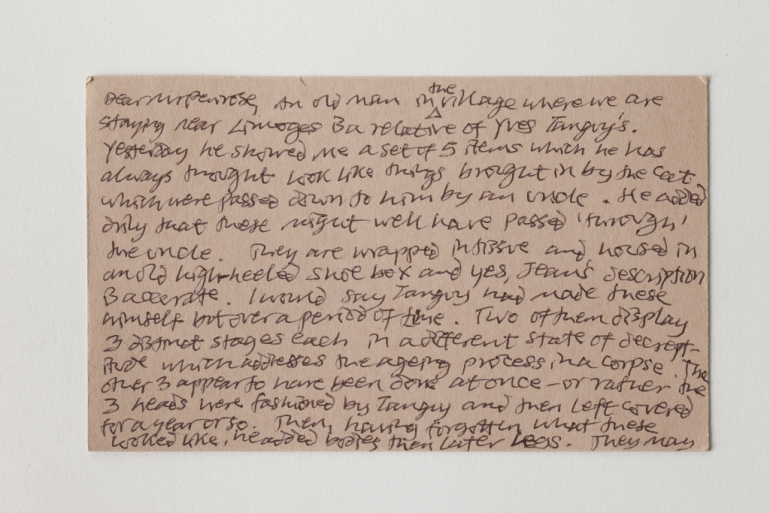 Dear Mr Penrose, An old man in the village where we are
staying near Limoges is a relative of Yves Tanguy's.
Yesterday he showed me a set of 5 items which he has
always thought look like things brought in by the cat
which were passed down to him by an uncle. He added
drily that these might well have passed 'through'
the uncle. They are wrapped in tissue and housed in
an old high-heeled shoe box and yes, Jean's description
is accurate. I would say Tanguy had made these
himself but over a period of time. Two of them display
3 distinct stages each in a different state of decrept-
itude which addresses the ageing process in a corpse. The
other 3 appear to have been done at once – or rather the
3 heads were fashioned by Tanguy and then left covered
for a year or so. Then, having forgotten what these
looked like, he added bodies then later legs. They may